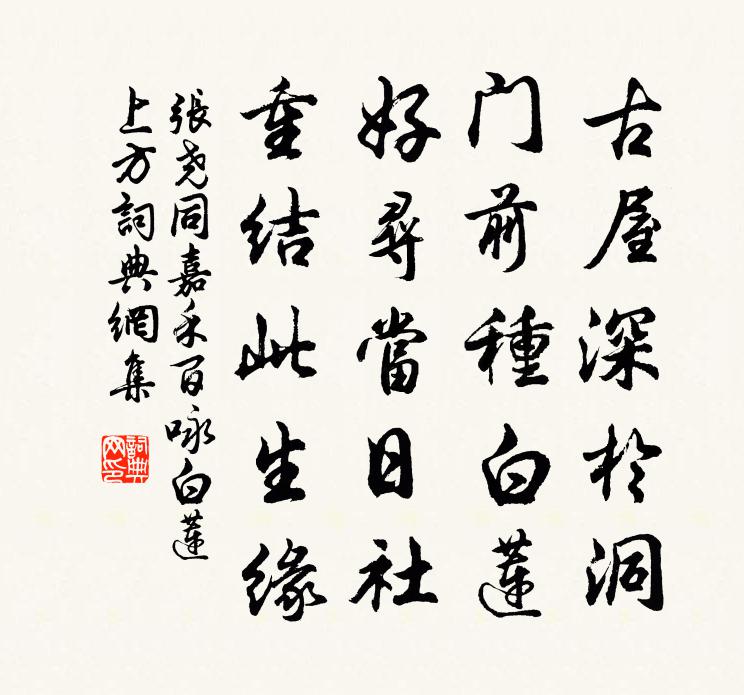 古屋深於洞
门前種白蓮
好尋當日社
重结此生緣
張尭同嘉禾百咏白蓮
上方詞典網集
詞典网印